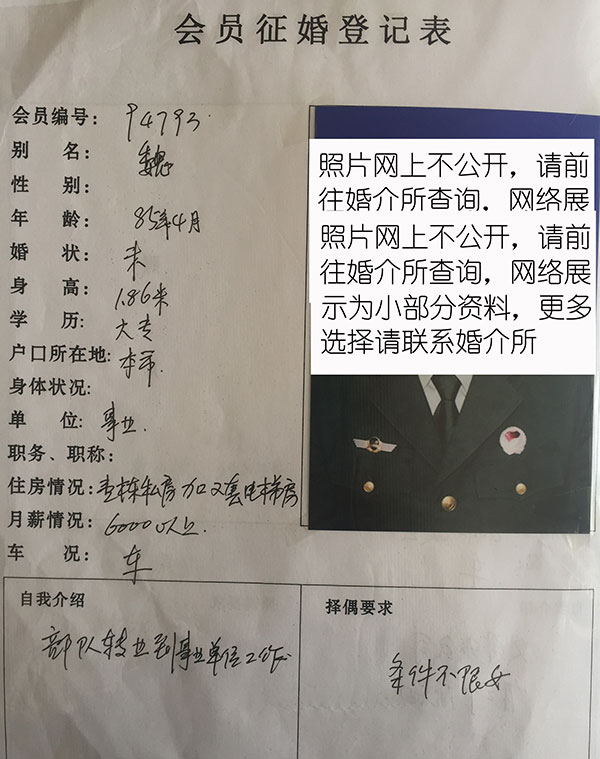 会员征婚登记表
会员编号: 94793
别 名: 魏
性 别:
年 龄: 85年4月
婚 状: 未
身 高: 1.86米
学 历: 大专
户口所在地: 本市
身体状况:
单 位: 事业.
职务、职称:
住房情况: 栋私房加又套电梯房
月薪情况: 6000以上.
车 况: 车
照片网上不公开，请前
往婚介所查询，网络展
照片网上不公开，请前
往婚介所查询，网络展
示为小部分资料，更多
选择请联系婚介所
自我介绍
部队转业到事业单位工作
择偶要求
条件不限女